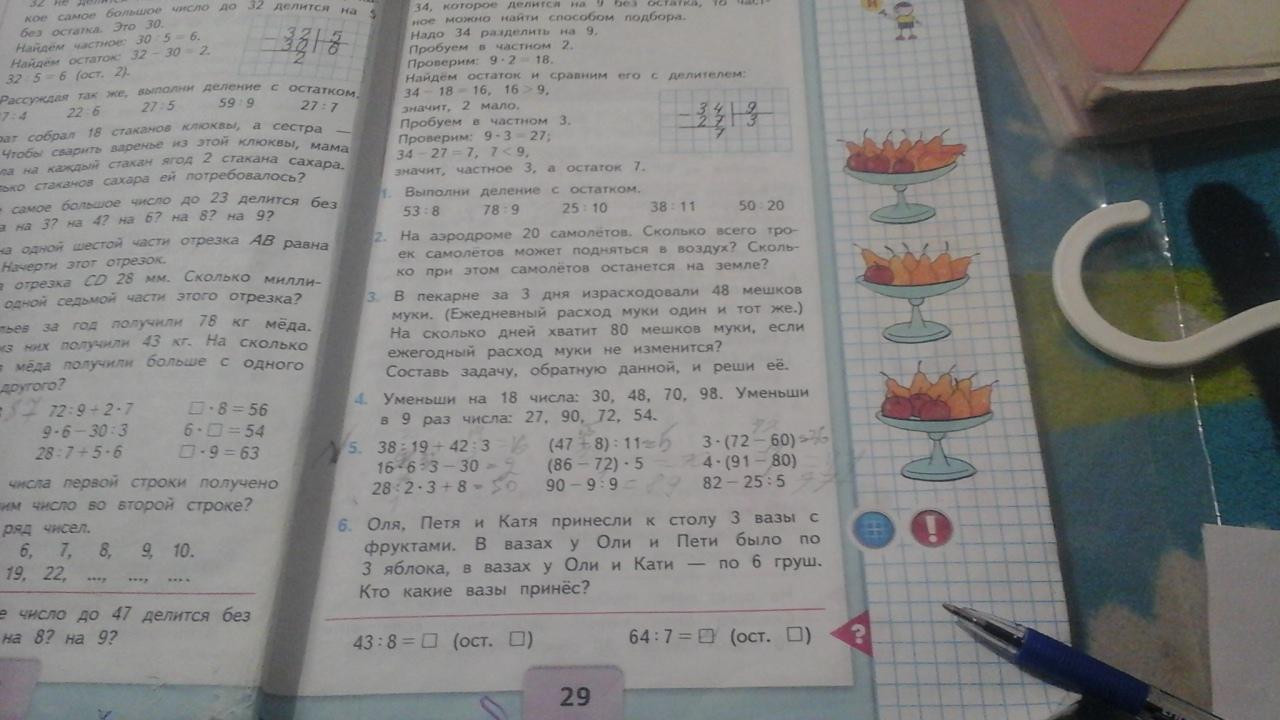 кое самое большое число до 32 делится на 5
без остатка. Это 30.
Найдём частное: 30 : 5 = 6.
Найдём остаток: 32 − 30 = 2.
32 : 5 = 6 (ост. 2).
32 5
30 6
2
Рассуждая так же, выполни деление с остатком.
7 : 4 22 : 6 27 : 5 59 : 9 27 : 7
рат собрал 18 стаканов клюквы, а сестра —
Чтобы сварить варенье из этой клюквы, мама
ла на каждый стакан ягод 2 стакана сахара.
лько стаканов сахара ей потребовалось?
самое большое число до 23 делится без
а на 3? на 4? на 6? на 8? на 9?
на одной шестой части отрезка АВ равна
Начерти этот отрезок.
а отрезка CD 28 мм. Сколько милли-
одной седьмой части этого отрезка?
льев за год получили 78 кг мёда.
из них получили 43 кг. На сколько
в мёда получили больше с одного
другого?
72 : 9 + 2 · 7 □ · 8 = 56
9 · 6 − 30 : 3 6 · □ = 54
28 : 7 + 5 · 6 □ · 9 = 63
числа первой строки получено
им число во второй строке?
ряд чисел.
6, 7, 8, 9, 10.
19, 22, ..., ..., ....
е число до 47 делится без
на 8? на 9?
34, которое делится на 9 без остатка, то част-
ное можно найти способом подбора.
Надо 34 разделить на 9.
Пробуем в частном 2.
Проверим: 9 · 2 = 18.
Найдём остаток и сравним его с делителем:
34 − 18 = 16, 16 > 9,
значит, 2 мало.
Пробуем в частном 3.
Проверим: 9 · 3 = 27;
34 − 27 = 7, 7 < 9,
значит, частное 3, а остаток 7.
34 9
27 3
7
1. Выполни деление с остатком.
53 : 8 78 : 9 25 : 10 38 : 11 50 : 20
2. На аэродроме 20 самолётов. Сколько всего тро-
ек самолётов может подняться в воздух? Сколь-
ко при этом самолётов останется на земле?
3. В пекарне за 3 дня израсходовали 48 мешков
муки. (Ежедневный расход муки один и тот же.)
На сколько дней хватит 80 мешков муки, если
ежегодный расход муки не изменится?
Составь задачу, обратную данной, и реши её.
4. Уменьши на 18 числа: 30, 48, 70, 98. Уменьши
в 9 раз числа: 27, 90, 72, 54.
5. 38 : 19 + 42 : 3 (47 + 8) : 11 3 · (72 − 60)
16 · 6 : 3 − 30 (86 − 72) · 5 4 · (91 − 80)
28 : 2 · 3 + 8 = 50 90 − 9 : 9 = 89 82 − 25 : 5
6. Оля, Петя и Катя принесли к столу 3 вазы с
фруктами. В вазах у Оли и Пети было по
3 яблока, в вазах у Оли и Кати — по 6 груш.
Кто какие вазы принёс?
43 : 8 = □ (ост. □) 64 : 7 = □ (ост. □)
?
29